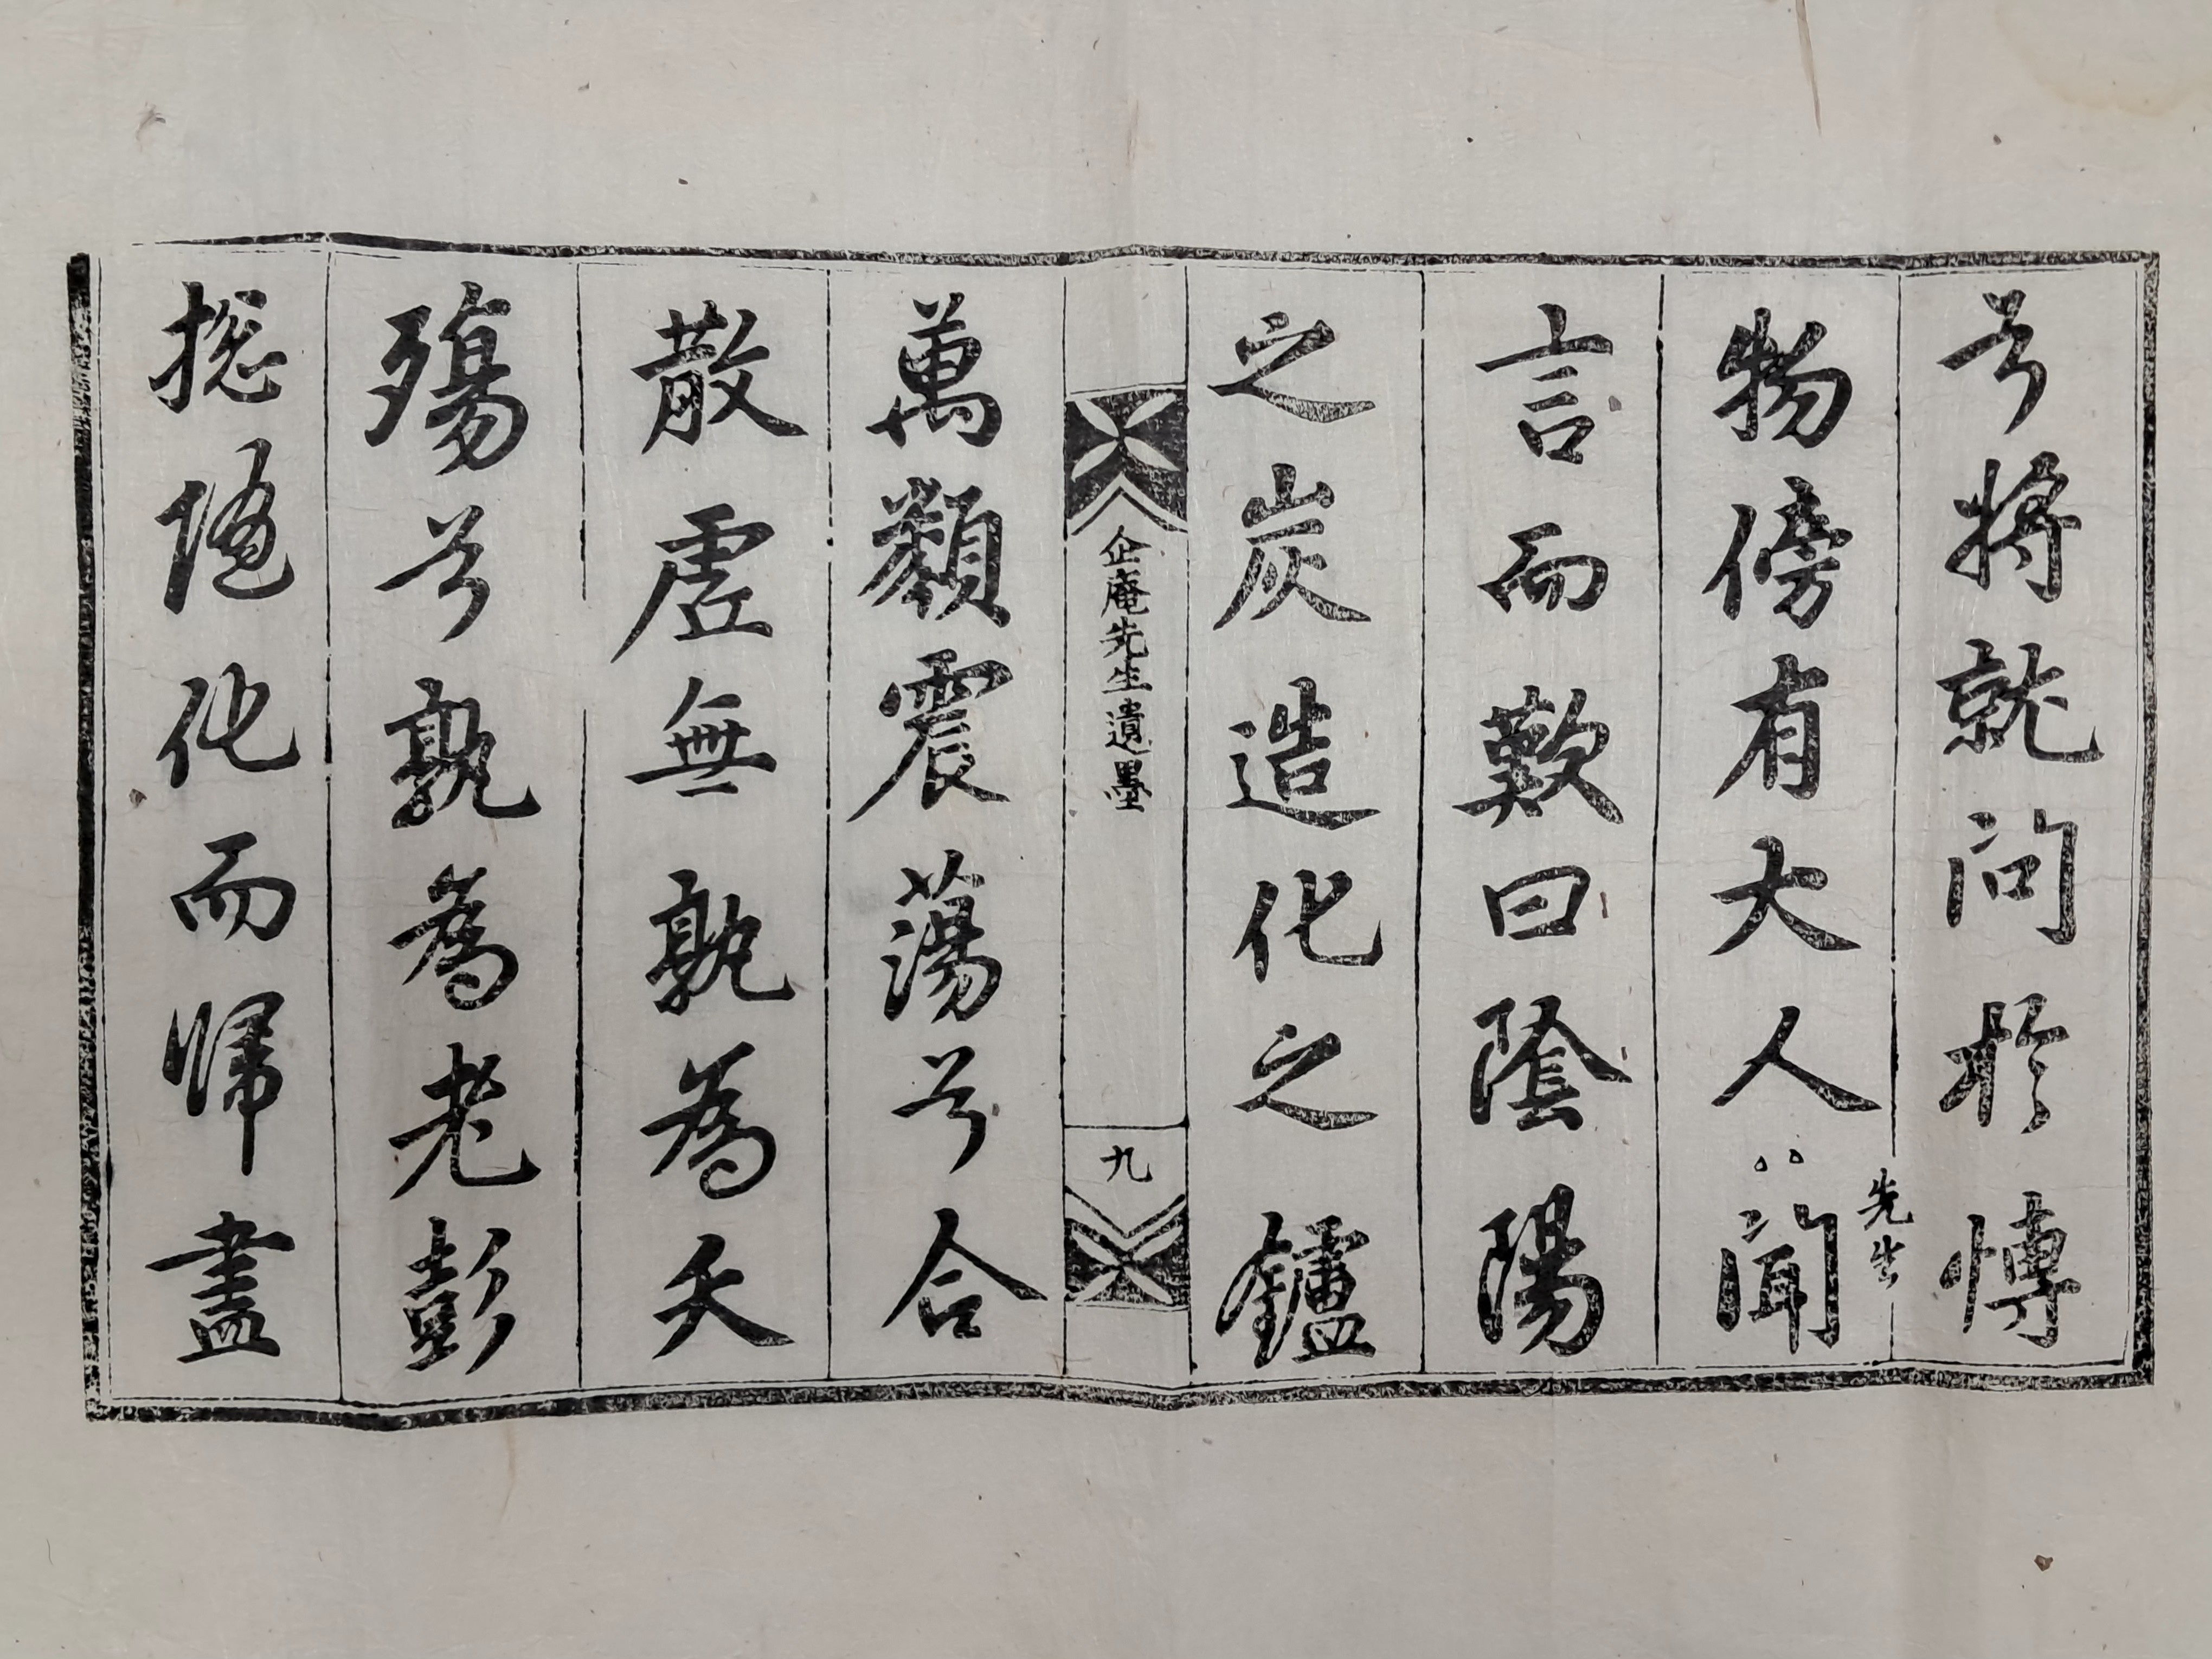 兮將就問於愽
物傍有大人聞
先生
言而歎曰陰陽
之炭造化之鑪
企庵先生遺墨
九
萬類震蕩兮合
散虛無孰為夭
殤兮孰為老彭
摠隨化而歸盡